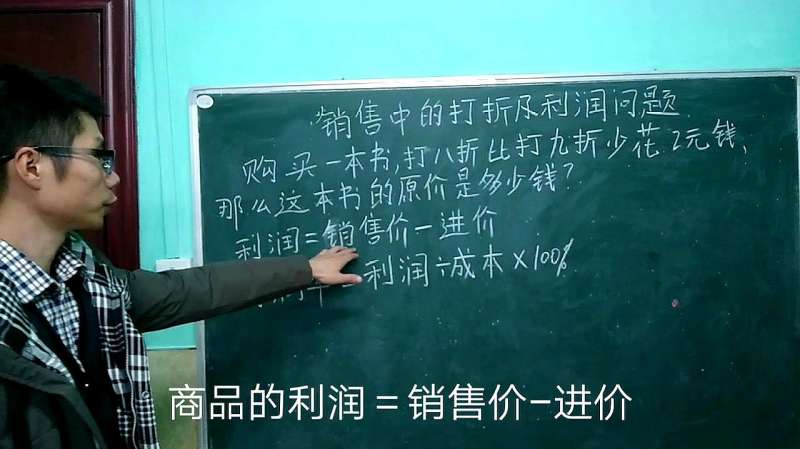 销售中的打折及利润问题
购买一本书,打八折比打九折少花2元钱,
那么这本书的原价是多少钱?
利润=销售价-进价
利润÷成本×100%
商品的利润=销售价-进价